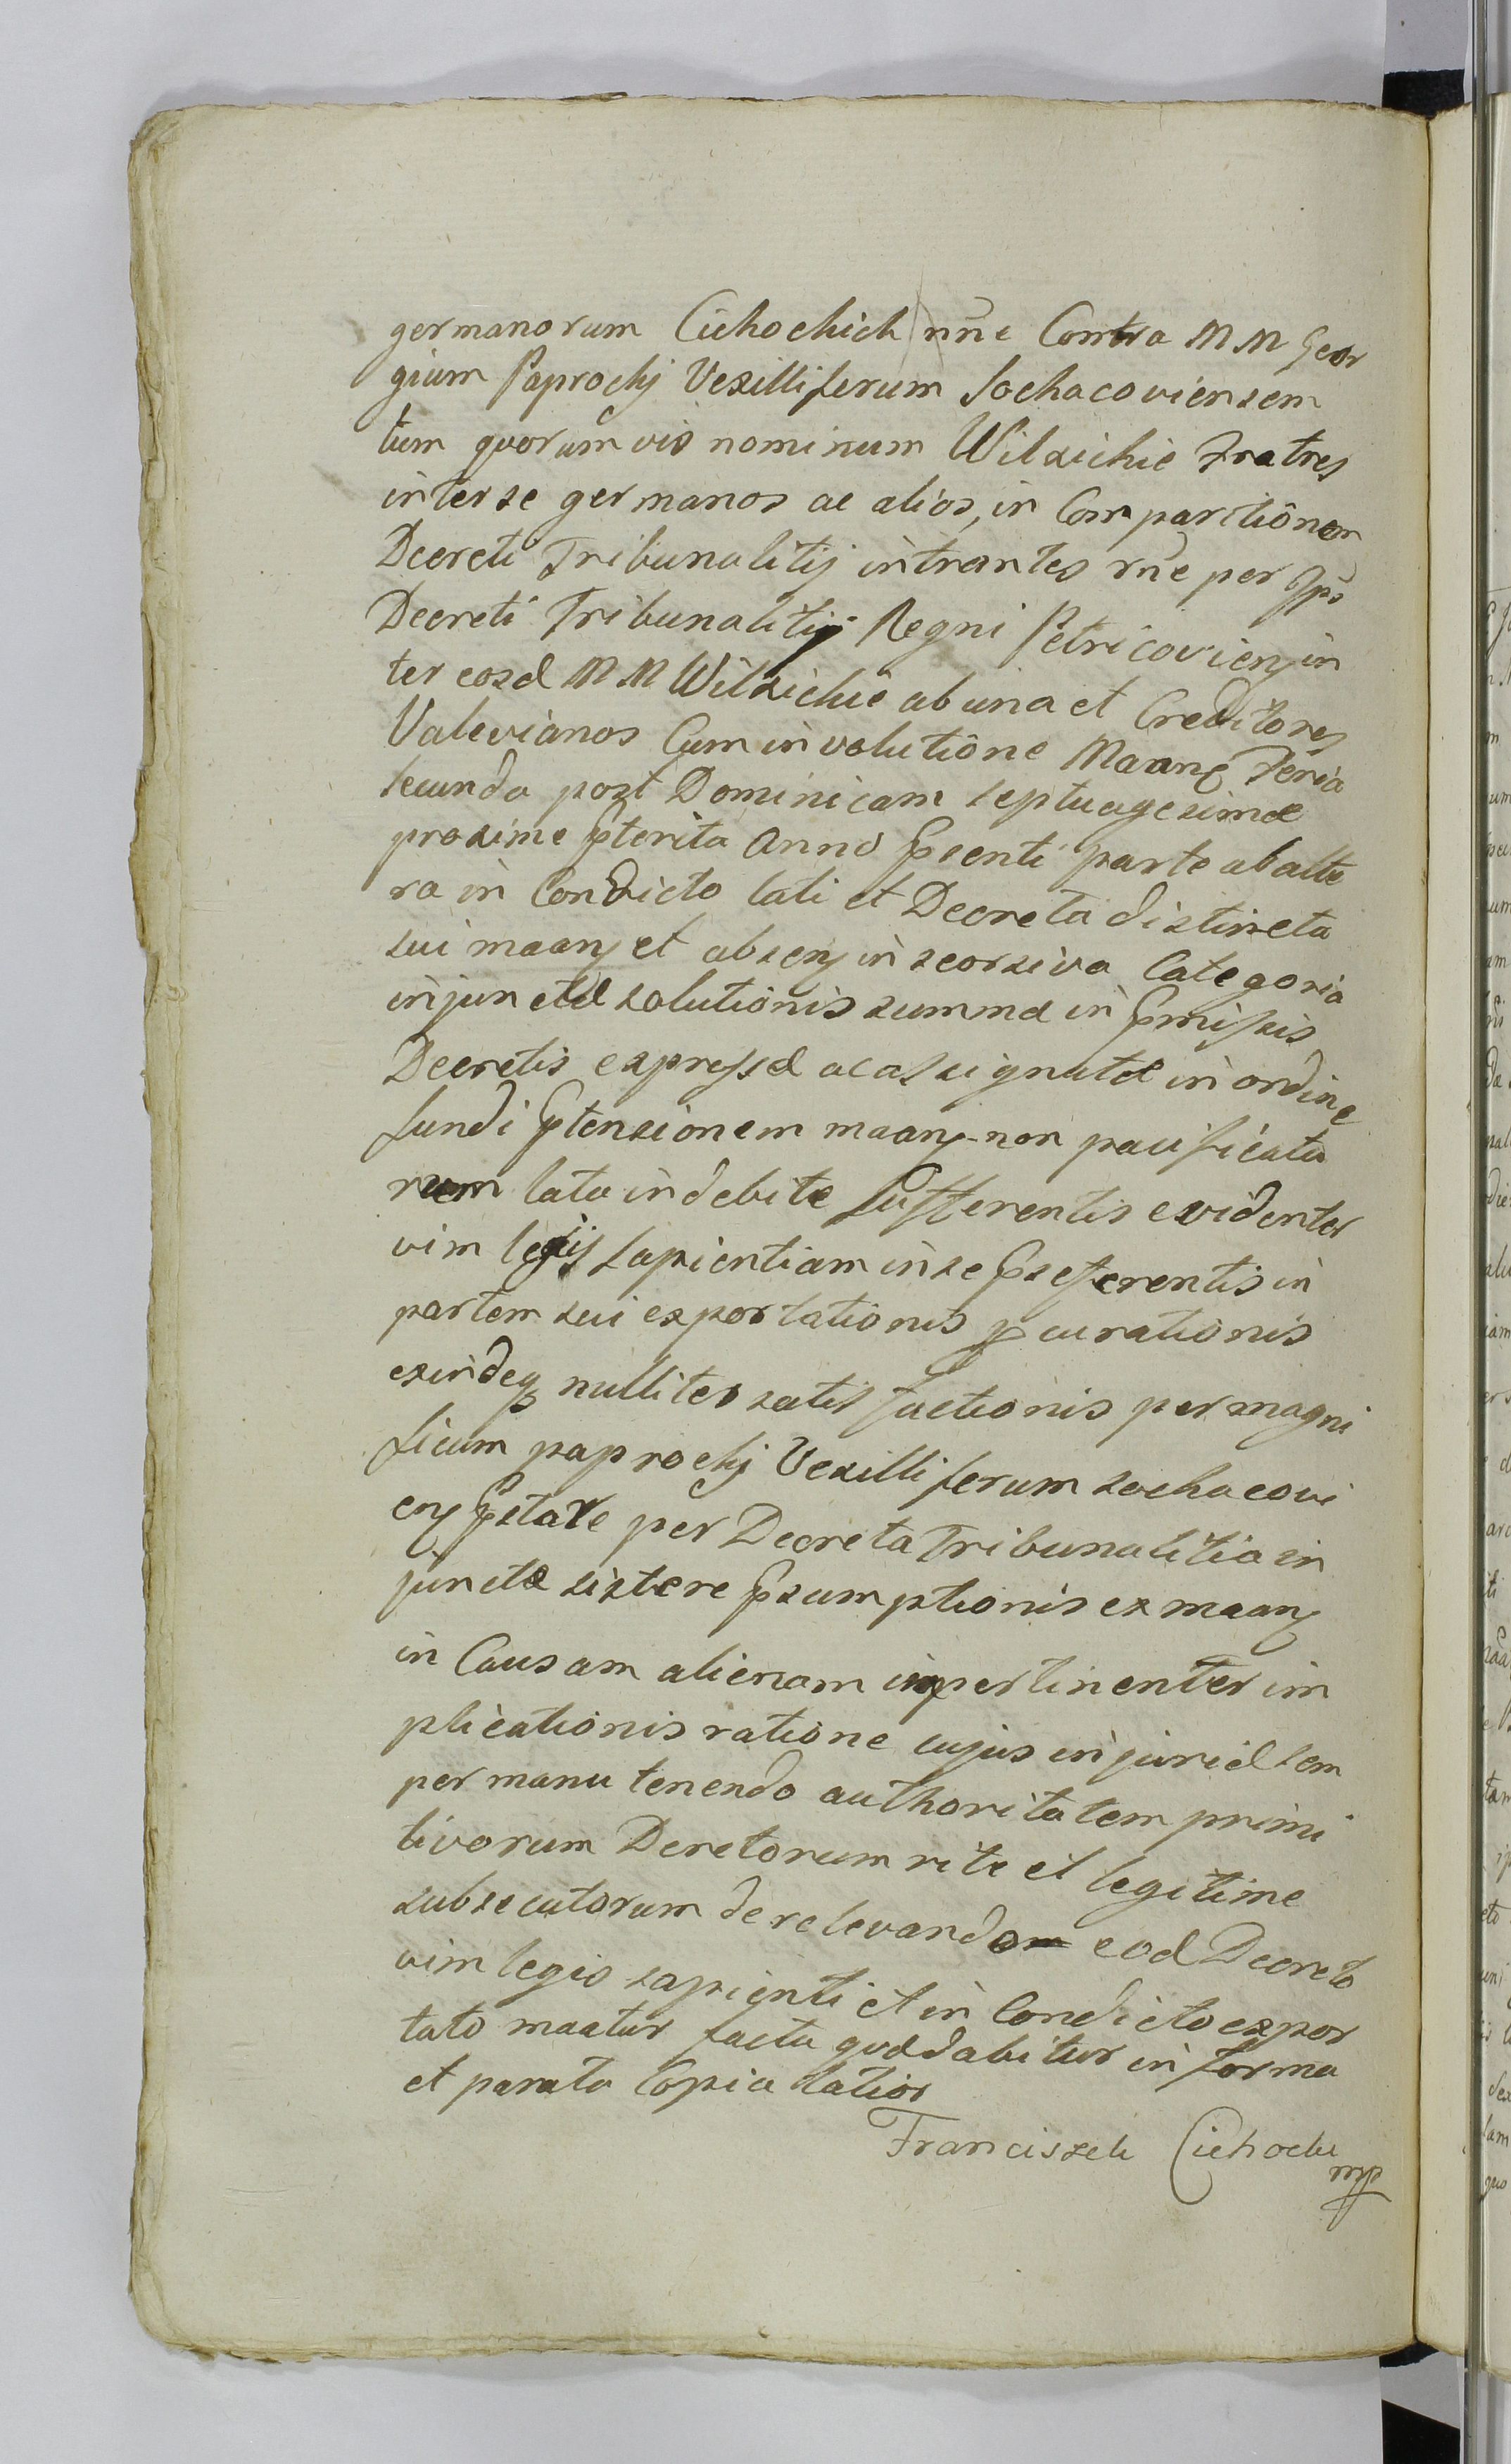 germanorum Cichockich nn̄e Contra M M Geor
gium Paprocky Vexilliferum Sochacoviensem
tum quorumvis nominum Wilxickie Fratres
inter se germanos ac alios, in Comparitiônem
Decreti Tribunalitij intrantes rn̄e per
Decreti Tribunalitij Regni Petricovien in
ter eosd M M Wilxickie ab una et Creditores
Valevianos Cum involutiône Maang Feria
secunda post Dominicam septuagesimæ
proxime pterita Anno psenti parte ab alte
ra in Condicto lati et Decreta distincta
sui maang et absen in seorsiva Categoria
injunctæ solutionis summæ in pmissis
Decretis expressæ ac assignatæ in ordine
fundi ptensionem maang non pacificatu
rum lata indebite sufferentis evidenter
vim legis sapientiam in se pseferentis in
partem sui exportationis pcurationis
exindeq nulliter satisfactionis per magni
ficum paprocky Vexilliferum sochacovi
en pstare per Decreta Tribunalitia in
junctæ sistere psumptionis ex maang
in Causam alienam impertinenter im
plicationis ratione cujus injuriæ sem
per manu tenendo authoritatem primi
tivorum Deretorum rite et legitime
subsecutorum de relevando eod Decreto
vim legis sapienti et in Condicto expor
tato maatur facta quod dabitur in forma
et parata Copia latior
Franciszek Cichocki
mp